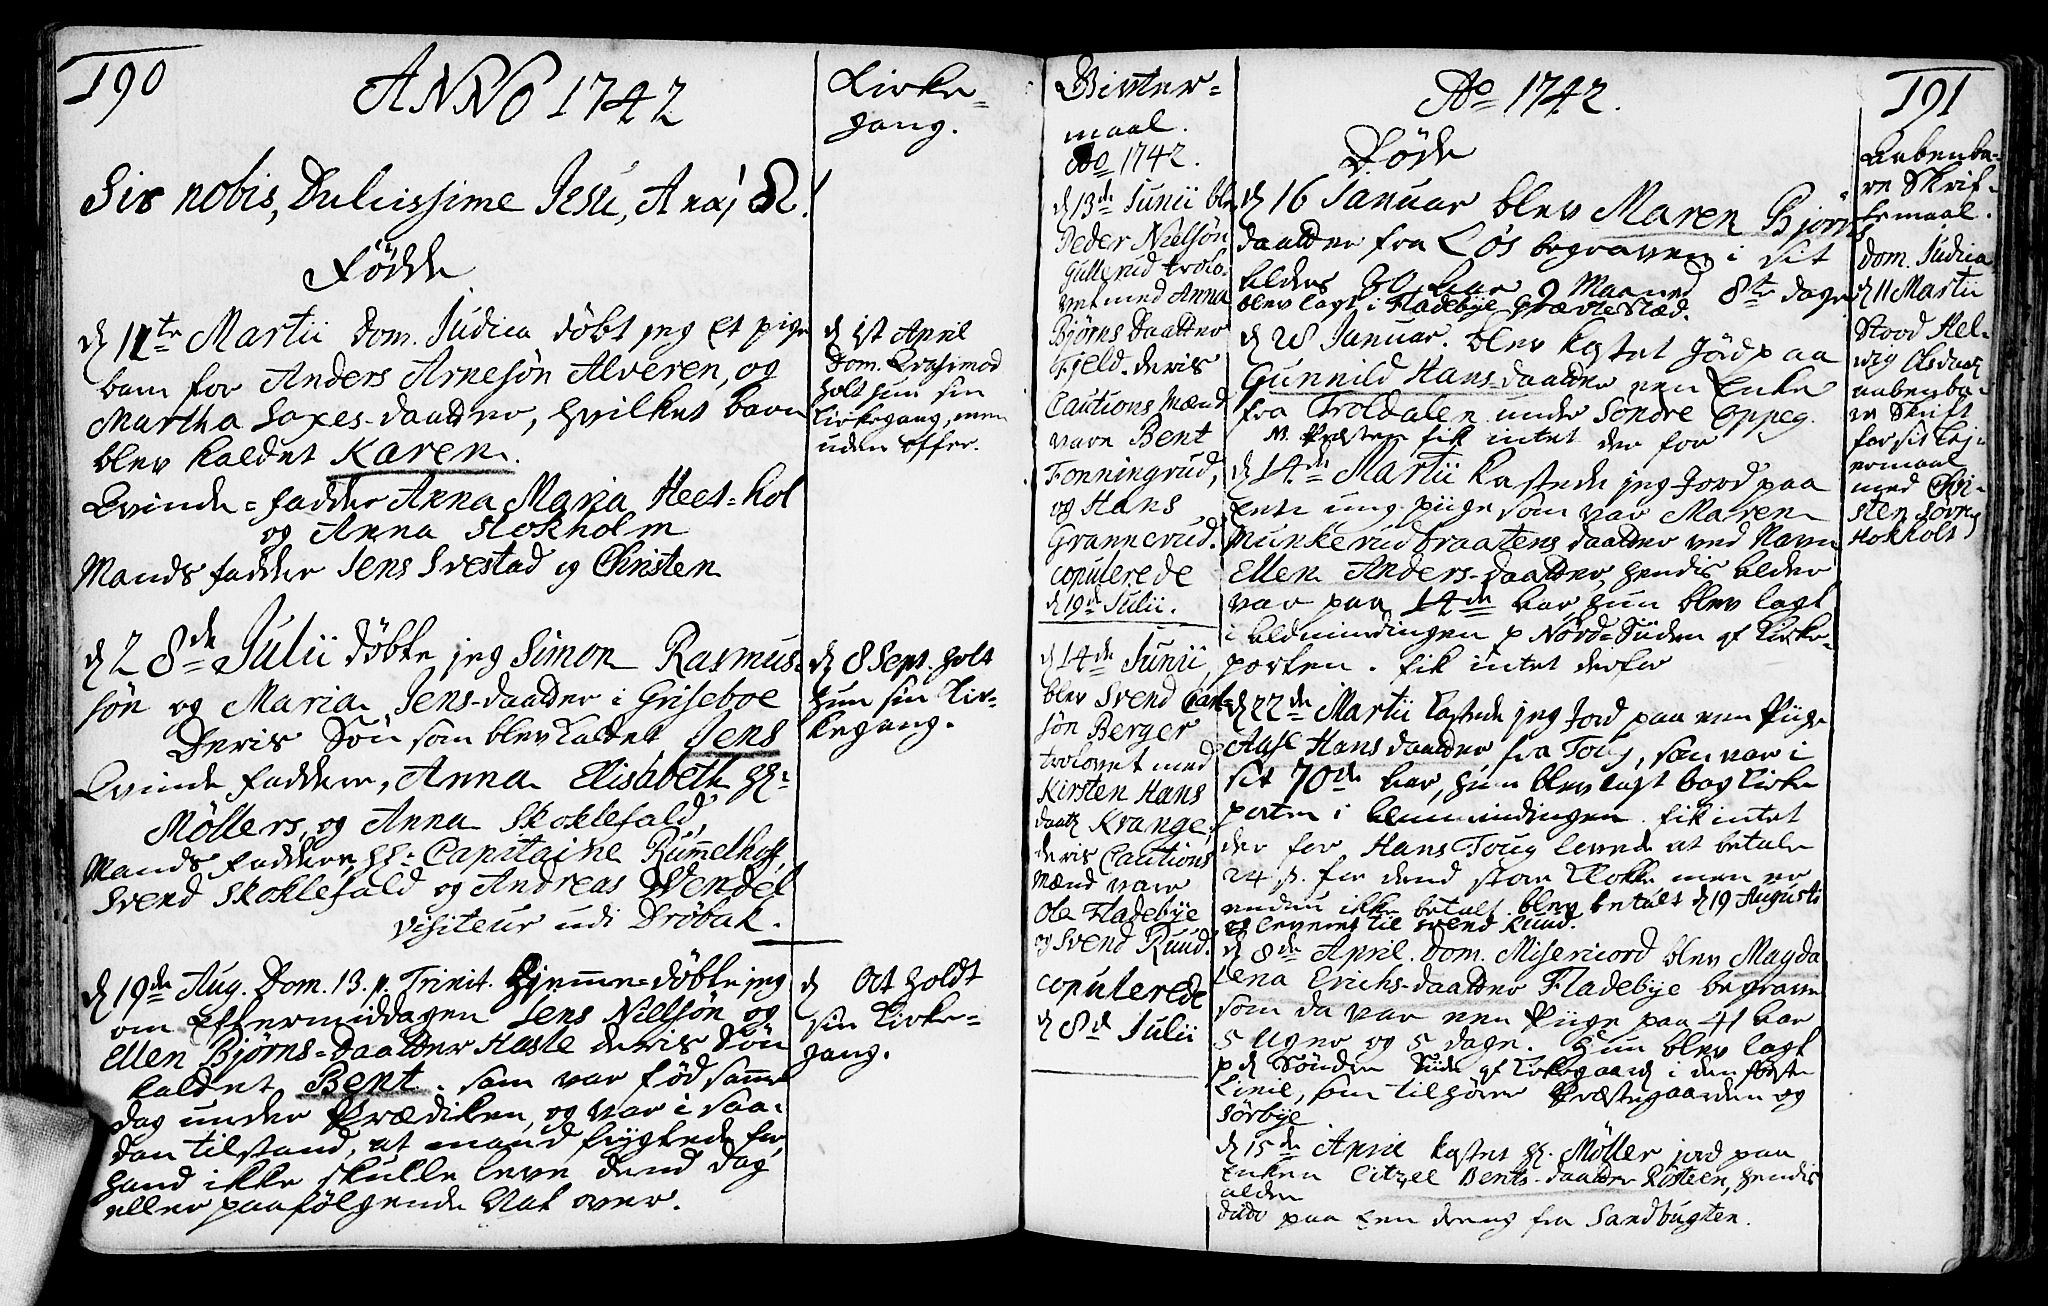 190
ANNO 1742
Sis nobis, Dulcissime Jesu, A &
Fødde
d 11te Martii Dom. Judica døbt jeg Et pige
barn for Anders Arnesøn Alveren, og
Martha Saxes-daatter, hvilket barn
blev kaldet Karen.
Qvinde-fadder Anna Maria Heet-hol
og Anna Stokholm
Mands fadder Jens Svestad og Christen
d 28de Julii døbte jeg Simon Rasmus-
søn og Maria Jens-daatter i Griseboe
Deris Søn som blev kaldet Jens
Qvinde faddere, Anna Elisabeth Hr:
Møllers, og Anna Skoklefald,
Mands faddere, Hr: Capitaine Rummelhoff,
Svend Skoklefald og Andreas Wendel
Visiteur udi Drøbak.
d 19de Aug. Dom. 13. p. Trinit. hjemme-døbte jeg
om Eftermiddagen Jens Nielsøn og
Ellen Bjørns-Daatter Hasle deris Søn
kaldet Bent. som var fød samme
dag under Prædiken, og var i saa-
dan tilstand, at mand frygtede for,
hand ikke skulle leve dend dag
eller paafølgende Nat over.
Kirke-
gang.
d 1st April
Dom. Qvasimod
holt hun sin
kirkegang, men
uden offer.
d 8 Sept. holt
hun sin Kir-
kegang.
d Oct holdt
sin Kirke-
gang.
Vivter-
maal.
Ao 1742.
d 13de Junii blev
Peder Nielsøn
Gullerud trolo-
vet med Anna
Bjørns Daatter
Fjeld. deris
Cautions Mænd
vare Bent
Fonningrud,
og Hans
Grannerud.
copulerede
d 19d Julii.
d 14de Junii
blev Svend Carl-
søn Berger
trolovet med
Kirsten Hans
daatr Krange,
deris Cautions
Mænd vare
Ole Fladebye
og Svend Ruud.
copulerede
d 8d Julii
Ao 1742.
Døde
d 16 Januar blev Maren Bjørns
daatter fra Løs begraven i sit
alders 80 Aar 9 Maaned 8te dage
blev lagt i Fladebye Grævte Stæd.
d 28 Januar. blev kastet Jord paa
Gunnild Hans-daatter een Enke
fra Troldalen under Søndre Oppeg.
N. Præsten fik intet der for
d 14de Martii kastede jeg Jord paa
Een ung piige som var Maren
Munkerudbraatens daatter ved Navn
Ellen Anders-daatter, hendis alder
var paa 14de Aar, hun blev lagt
i Alminding en p Nord-Siiden af Kirke-
porten. fik intet derfor
d 22de Martii kastede jeg Jord paa een Piige
Aase Hans daatter fra Toug, som var i
sit 70de Aar, hun blev lagt bag Kirke
porten i Almindingen. fik intet
der for Hans Toug lovede at betale
24 s. for dend store Klokke men er
endnu ikke betalt. blev betalt d 19 Augusti
og leveret til Svend Ruud.
d 8de April. Dom. Misericord blev Magda
lena Erichs-daatter Fladebye begraven
som da var een Piige paa 41 Aar
5 Uger og 5 dage. Hun blev lagt
p d Søndre Siide af Kirkegaard i den første
Linie, som tilhører Præstegaarden og
Sørbye
d 15de April kastet Hr. Møller jord paa
Enken Citzel Bents-daatter Røsteen, hendis
alder
Døde paa Een dreng fra Sandbugten.
191
Aabenba-
re Skrif-
temaal.
Dom. Judica
d 11 Martii
Stood Hel-
vig Olsdatr
aabenba-
re Skrift
for sit Lej-
ermaal
med Chri-
sten Sørens
Hokholt